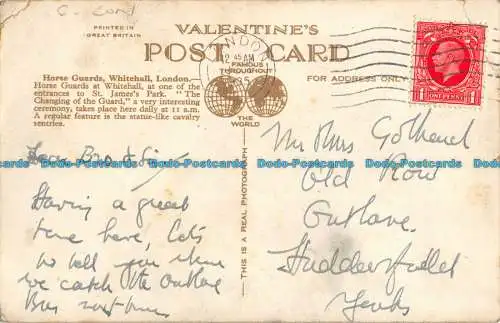 PRINTED IN
GREAT BRITAIN
VALENTINE'S
POST CARD
FAMOUS
THROUGHOUT
THE
WORLD
FOR ADDRESS ONLY
ONE PENNY
Horse Guards, Whitehall, London.
Horse Guards at Whitehall, at one of the
entrances to St. James's Park. "The
Changing of the Guard," a very interesting
ceremony, takes place here daily at 11 a.m.
A regular feature is the statue-like cavalry
sentries.
THIS IS A REAL PHOTOGRAPH
Dear Bro & Sis
Having a great
time here, lots
to tell you when
we catch the Outlane
Bus
Mr Mrs
Old Row
Outlane.
Huddersfield
Yorks
Dodo-Postcards Dodo-Postcards Dodo-Postcards Dodo-Postcards Dodo-Postcards